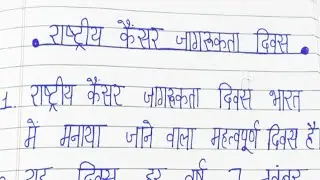 • राष्ट्रीय कैंसर जागरूकता दिवस •
1. राष्ट्रीय कैंसर जागरूकता दिवस भारत
में मनाया जाने वाला महत्वपूर्ण दिवस है।
यह दिवस हर वर्ष 7 नवंबर